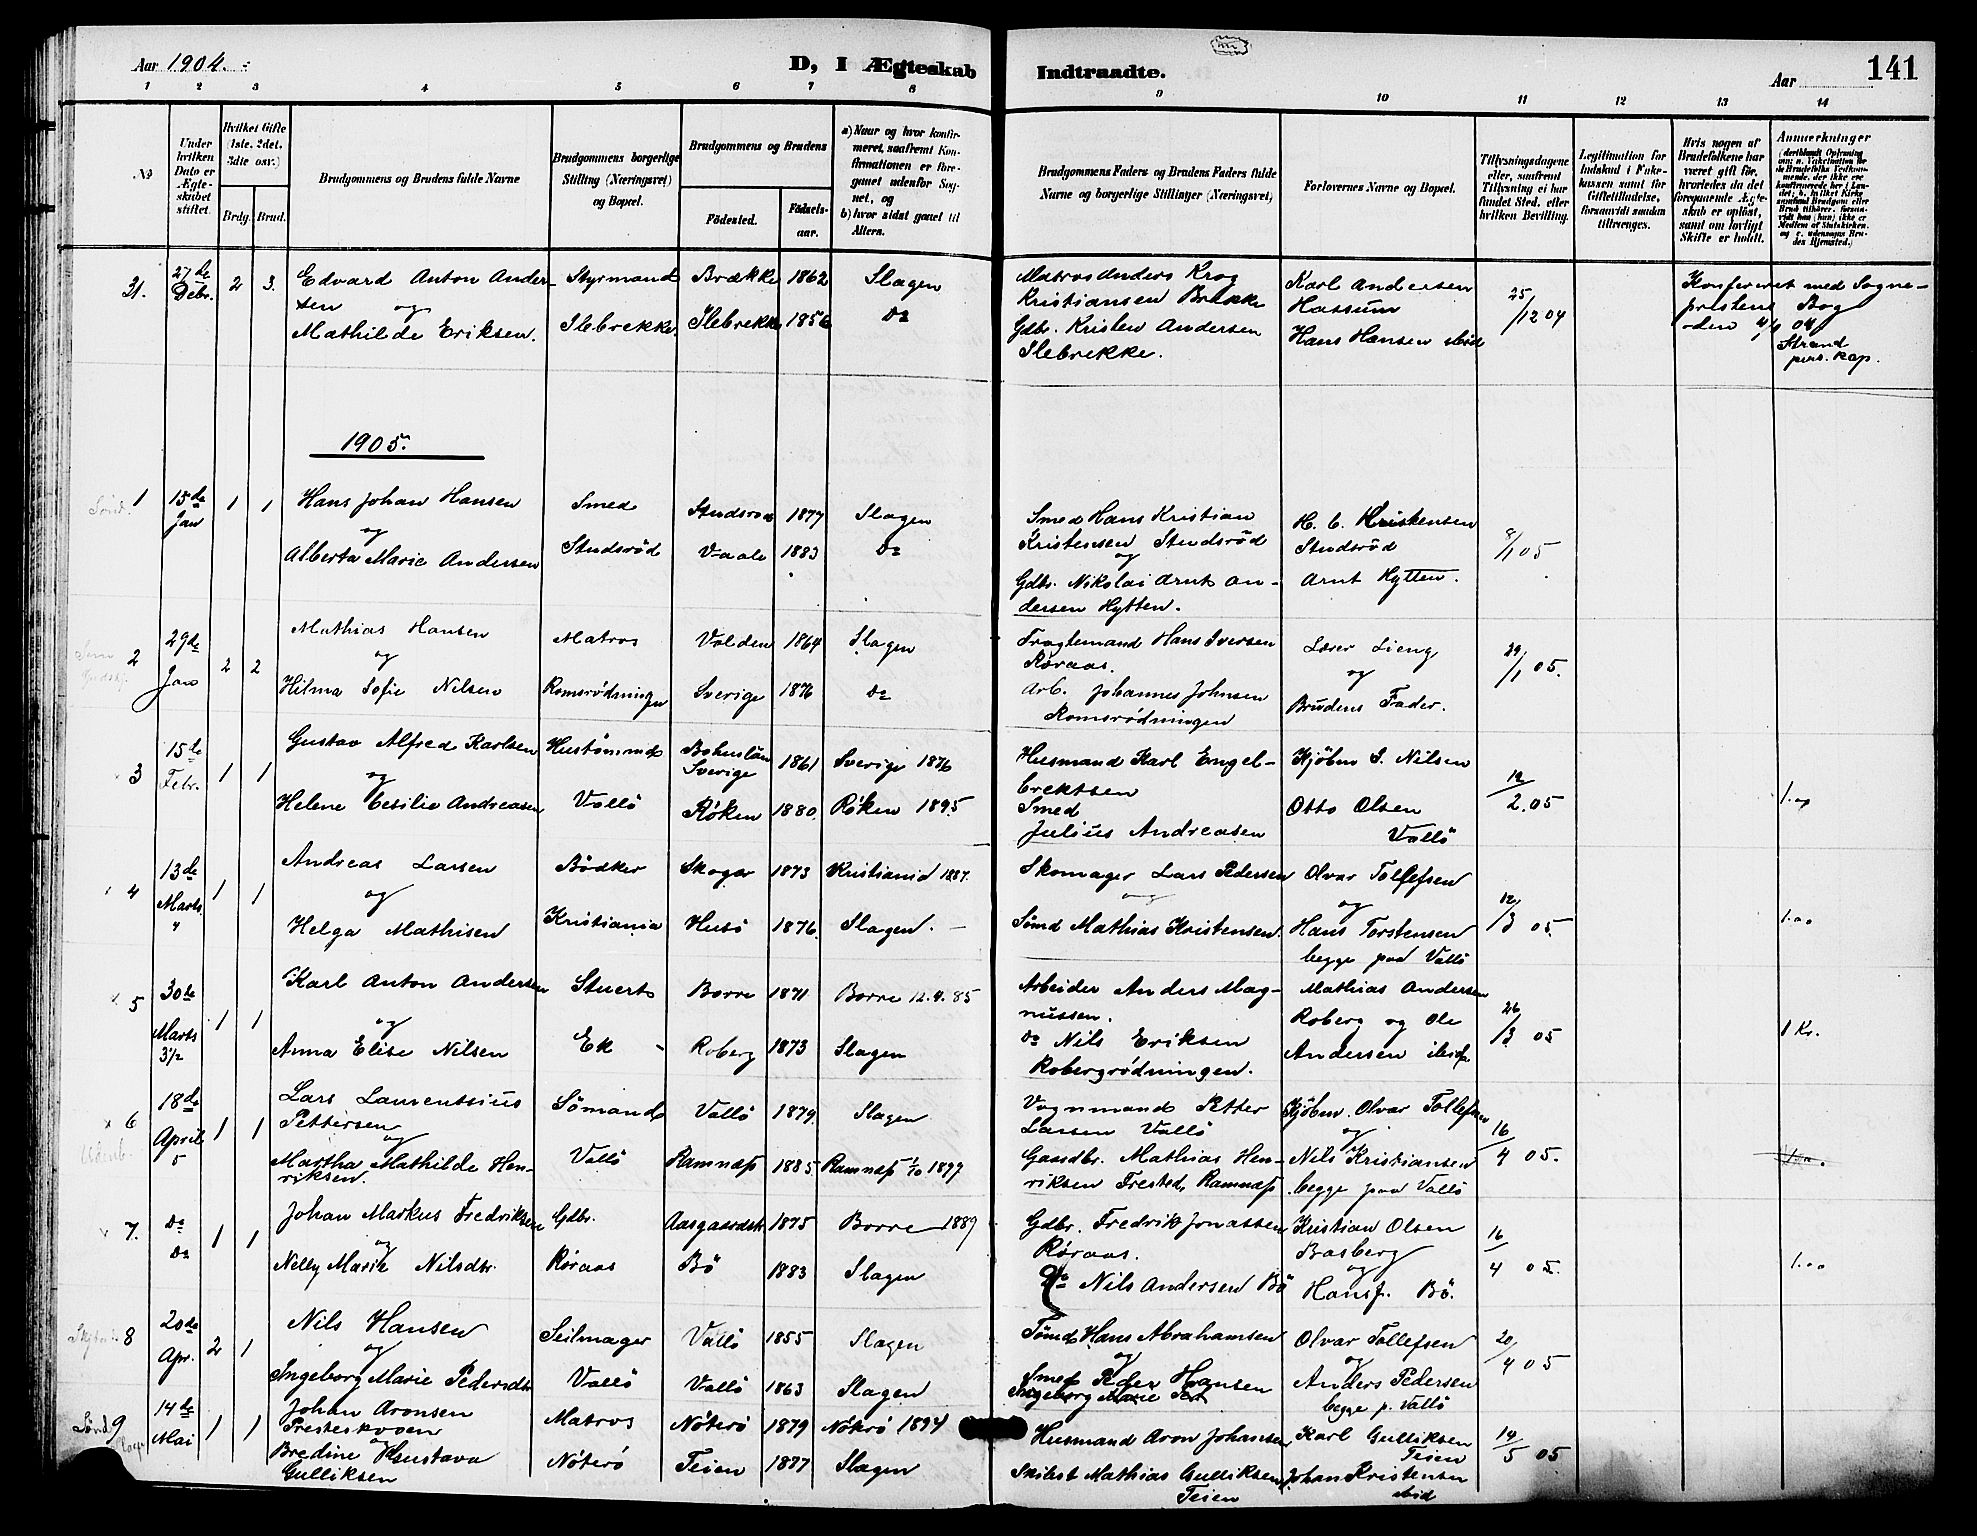 Aar 1904.
D, I Ægteskab
Indtraadte.
Aar
141
1 2 3 4 5 6 7 8 9 10 11 12 13 14
No
Under hvilken Dato er Ægteskabet stiftet.
Hvilket Gifte (1ste, 2det, 3die osv.)
Brdg. Brud.
Brudgommens og Brudens fulde Navne
Brudgommens borgerlige Stilling (Næringsvei) og Bopæl.
Brudgommens og Brudens
Fødested.
Fødselsaar.
a) Naar og hvor konfirmeret, saafremt Konfirmationen er foregaaet udenfor Sognet, og
b) hvor sidst gaaet til Alters.
Brudgommens Faders og Brudens Faders fulde Navne og borgerlige Stillinger (Næringsvei)
Forlovernes Navne og Bopæl.
Tillysningsdagene eller, saafremt Tillysning ei har fundet Sted, efter hvilken Bevilling.
Legitimation for Indskud i Enkekassen samt for Giftetilladelse, forsaavidt saadan tiltrænges.
Hvis nogen af Brudefolkene har været gift før, hvorledes da det foregaaende Ægteskab er opløst, samt om lovligt Skifte er holdt.
Anmærkninger
31. 27de Debr. 2 3.
Edvard Anton Andersen
og
Mathilde Eriksen.
Styrmand
Ilebrekke.
Brække 1862 Slagen
Ilebrekke 1856 Do
Matros Anders Krog
Kristiansen Brække
Gdbr. Kristen Andersen
Ilebrekke.
Karl Andersen
Hassum
Hans Hansen ibid
25/12 04
Konfereret med Sogneprestens Bog
den 4/4 04
Strand
pers. kap.
1905.
1 15de Jan 1 1
Hans Johan Hansen
og
Alberta Marie Andersen
Smed
Studsrød
Studsrød 1877 Slagen
Vaale 1883 Do
Smed Hans Kristian
Kristensen Studsrød
og
Gdbr. Nikolai Arnt Andersen Hytten.
H. C. Kristensen
Studsrød
Arnt Hytten.
8/1 05
2 29de Jan 2 2
Mathias Hansen
og
Hilma Sofie Nilsen
Matros
Romsrødningen
Volden 1864 Slagen
Sverige 1876 Do
Fragtemand Hans Iversen
Røraas.
Arb. Johannes Johnsen
Romsrødningen
Lærer Lieng,
og
Brudens Fader.
29/1 05.
3 15de Febr. 1 1
Gustav Alfred Karlsen
og
Helene Cesilie Andreasen
Hustømmd
Vallö
Bohuslän Sverige 1861 Sverige 1876
Røken 1880 Røken 1895
Husmand Karl Engelbrektsen
Smed
Julius Andreasen
Kjøbm S. Nilsen
Otto Olsen
Vallö
12/2. 05
4 13de Marts 1 1
Andreas Larsen
og
Helga Mathisen
Bödker
Kristiania
Skoger 1873 Kristiania 1887.
Husö 1876. Slagen.
Skomager Lars Pedersen
og
Sömd Mathias Kristensen.
Olvar Tollefsen
og
Hans Torstensen
begge paa Vallö
12/3 05.
1.00
5 30te Marts 3½ 1 1
Karl Anton Andersen
og
Anna Elise Nilsen
Stuert
Ek
Borre 1871 Borre 12.4.85
Roberg 1873 Slagen
Arbeider Anders Magnussen.
Do Nils Eriksen
Robergrødningen.
Mathias Andersen
Roberg og Ole
Andersen ibid.
26/3 05
1 Kr.
6 18de April 5 1 1
Lars Laurentsius
Pettersen
og
Martha Mathilde Henriksen.
Sömand
Vallö
Vallö 1879. Slagen
Ramnæs 1885 Ramnæs 1/10 1899
Vognmand Petter
Larsen Vallö
Gaardbr. Mathias Henriksen Frested, Ramnæs
Kjöbm. Olvar Tollefsen
og
Nils Kristiansen
begge paa Vallö
16/4 05.
7. Do Do 1 1
Johan Markus Fredriksen
og
Nelly Marie Nilsdtr.
Gdbr.
Røraas
Aasgaardstr. 1875 Borre 1889
Bö 1883 Slagen
Gdbr. Fredrik Jonassen
Røraas.
Do Nils Andersen Bö
Kristian Olsen
Basberg
og
Hans J. Bö.
16/4 05.
1.00
8 20de Apr. 2 1
Nils Hansen
og
Ingeborg Marie Pedersdtr
Seilmager
Vallö
Vallö 1855 Slagen
Vallö 1863 Slagen
Tömd Hans Abrahamsen
og
Smed Peder Hansen
Ingeborg Marie Ped
Olvar Tollefsen
og
Anders Pedersen
begge p. Vallö
20/4 05
Sönd 9 14de Mai 1 1
Johan Aronsen
Presteskoven
og
Bredine Gustava
Gulliksen
Matros
Nöterö
Nöterö 1879 Nöterö 1894
Teien 1887 Slagen
Husmand Aron Johansen
Skibst Mathias Gulliksen,
Teien
Karl Gulliksen
Teien
Johan Kristensen
ibid
14/5 05